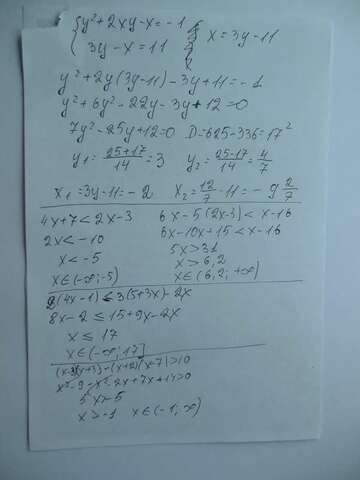 { y² + 2xy - x = -1
3y - x = 11 { x = 3y - 11
y² + 2y(3y-11) - 3y + 11 = -1
y² + 6y² - 22y - 3y + 12 = 0
7y² - 25y + 12 = 0 D = 625 - 336 = 17²
y₁ = (25+17)/14 = 3 y₂ = (25-17)/14 = 4/7
x₁ = 3y - 11 = -2 x₂ = 12/7 - 11 = -9 2/7
4x + 7 < 2x - 3
2x < -10
x < -5
x ∈ (-∞; -5)
6x - 5(2x-3) < x - 16
6x - 10x + 15 < x - 16
5x > 31
x > 6,2
x ∈ (6,2; +∞)
2(4x-1) ≤ 3(5+3x) - 2x
8x - 2 ≤ 15 + 9x - 2x
x ≤ 17
x ∈ (-∞; 17]
(x-3)(x+3) - (x+2)(x-7) > 10
x² - 9 - x² - 2x + 7x + 14 > 0
5x > -5
x > -1 x ∈ (-1; ∞)